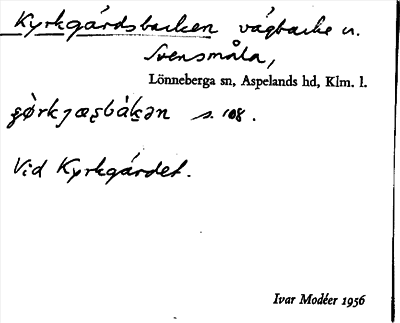 Kyrkgårdsbacken vägbacke v.
Svensmåla,
Lönneberga sn, Aspelands hd, Klm. l.
s. 108.
Vid Kyrkgårdet.
Ivar Modéer 1956